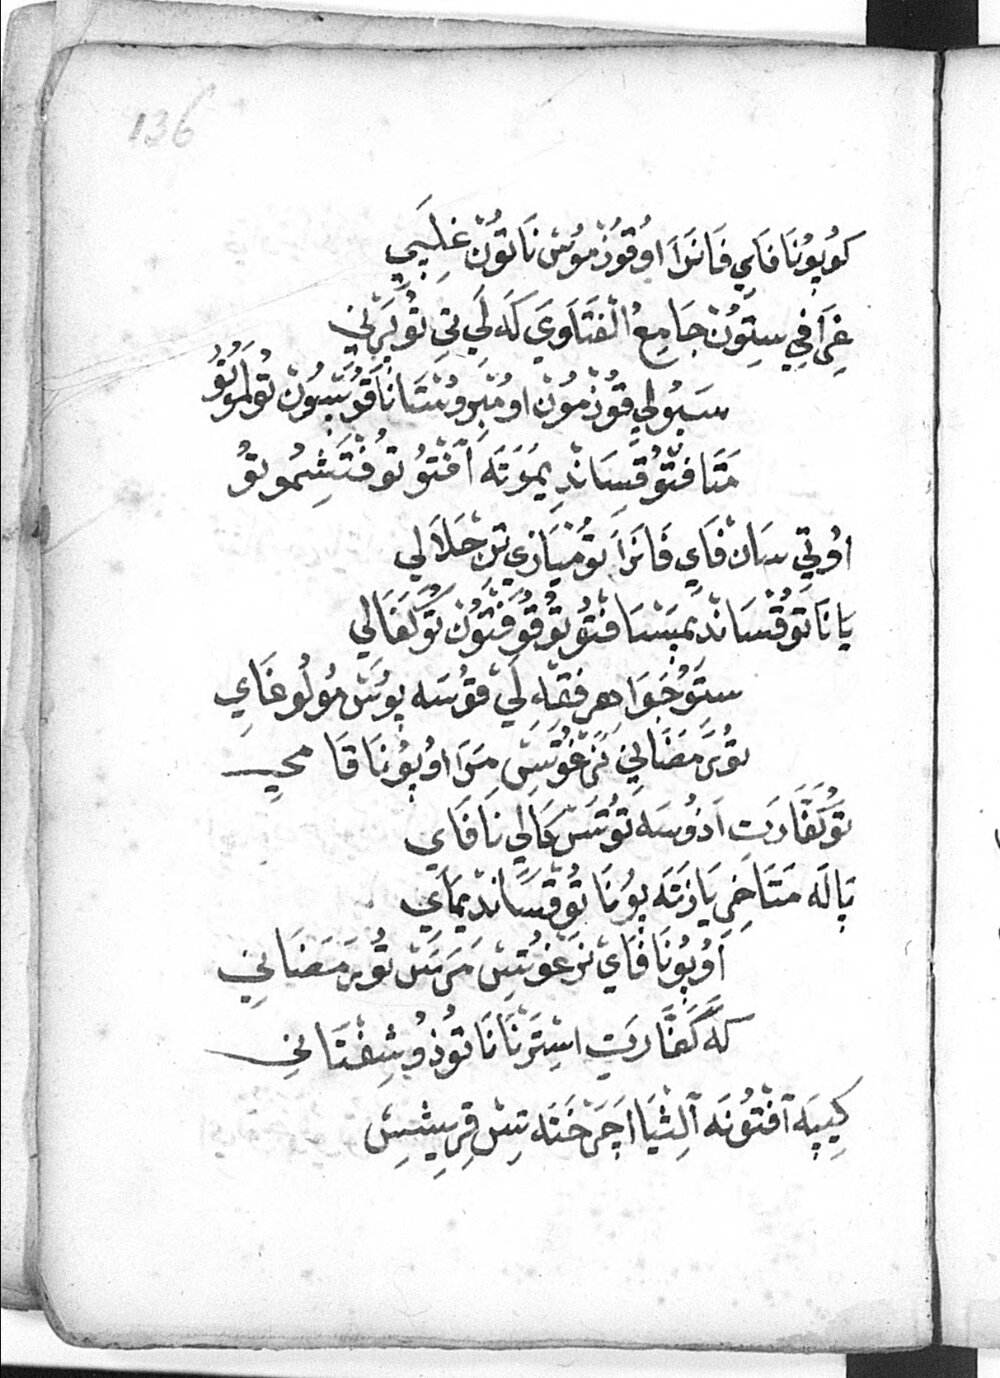 136
كوُپوُنَا فَايِ فَانَرَا اوُقوُذْ موُسْ نَاتوُنْ غِلِپِي
غِرَافِي سِتوُنْ جَامِعُ الْفَتَاوَيَ كَه لَيِ تِي توُ پَرَنِي
سَپوُلِي قوُذْ موُنْ اوُمْپِروُسْتَا نَا قوُپْسوُنْ توُ لَموُتوُ
مَتَا فْتوُ قِسَانْدِيمَوَتَه آفْتوُ توُ فْتَشِموُتوُ
اوُتِي سَانْ فَايِ فَانَرَا توُ مْيَازِي تَنْ حَلَالِي
يَانَا توُقْسَانْدِيمْپِسَا فْتوُ توُقوُ فْتوُنْ توُ كَفَالِي
سْتوُخْوَاهِرِ فِقْهِ لَيْ قوُسَه پوُسْ موُلوُغَايِ
توُ رَمَضَانِي نَرْغوُتَسْ مَرَا اوُپوُنَا قَا مْجِي
توُ كَفَّارَتْ اَذوُسَه توُتَسْ عَالِي نَا فَايِ
پَالَه مَتَاخَرِ يَازَتَه پوُنَا توُ قْسَانْدِيمَايِ
اَوُپوُنَا فَايْ نَرْغوُتِسْ مَرَسْ توُ رَمَضَانِي
كَه كَفَّارَتِ اسْتِرَنَا نَا توُذوُ شِفْتَانِي
كِيپَه آفْتوُنَه آلِثْيَا اَچَرْخَتَه تِسْ قِرِيشِسْ